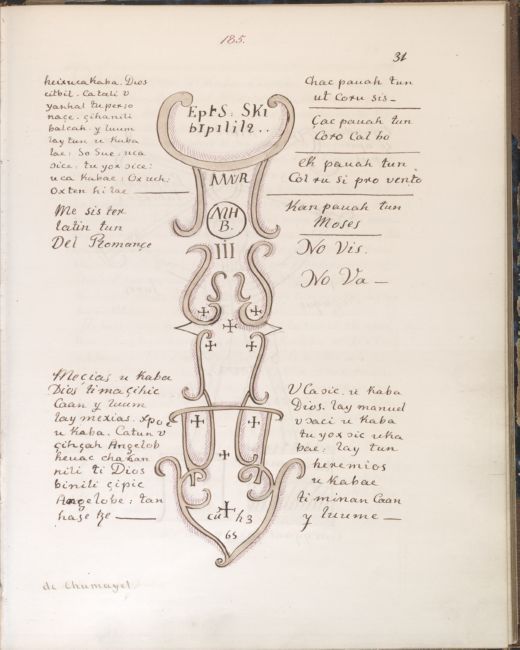 185.
31
heiruca Kaba. Dios
citbil. Catali v
yanhal tu perso
naçe. çihanili
balcah y luum
lay tun u Kaba
lae: So Sue: uca
sice: tu yox sice:
uca Kabae: Ox uch:
Oxten hi lae
Me sister
latin tun
Del Romançe
EptS: SKI
bIpılıl2..
MWR
NIH
B.
III
Chac pauah tun
ut Coru sis
Çac pauah tun
Coro Cal bo
ek pauah tun
Col ru si pro vento
Kan pauah tun
Moses
No Vis.
No Va
Mecias u Kaba
Dios ti ma çihic
Caan y luum
lay mexias. xpoe
u Kaba. Catun v
çihçah Angelob
heuac
nili ti Dios
binili çipic
Angelobe: tan
hasetze
V Ca sic. u Kaba
Dios. lay manuel
v u Kaba
tu yox sic uka
bae: lay tun
heremios
u Kabae
ti minan Caan
y luume
ca h3
65
de Chumayel